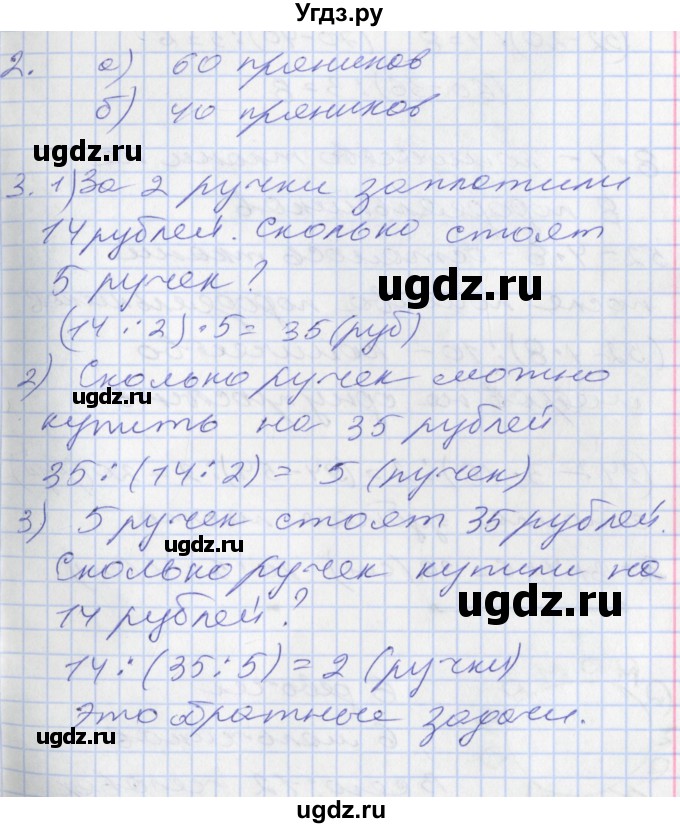 Угдз.ру
2. а) 60 пряников
б) 40 пряников
ugdz.ru
3. 1) За 2 ручки заплатили
14 рублей. Сколько стоят
5 ручек?
ugdz.ru
(14 : 2) · 5 = 35 (руб)
2) Сколько ручек можно
ugdz.ru
купить на 35 рублей
35 : (14 : 2) = 5 (ручек)
3) 5 ручек стоят 35 рублей.
ugdz.ru
Сколько ручек купили на
ugdz.ru
14 рублей?
14 : (35 : 5) = 2 (ручки)
Это обратные задачи.
ugdz.ru
ugdz.ru